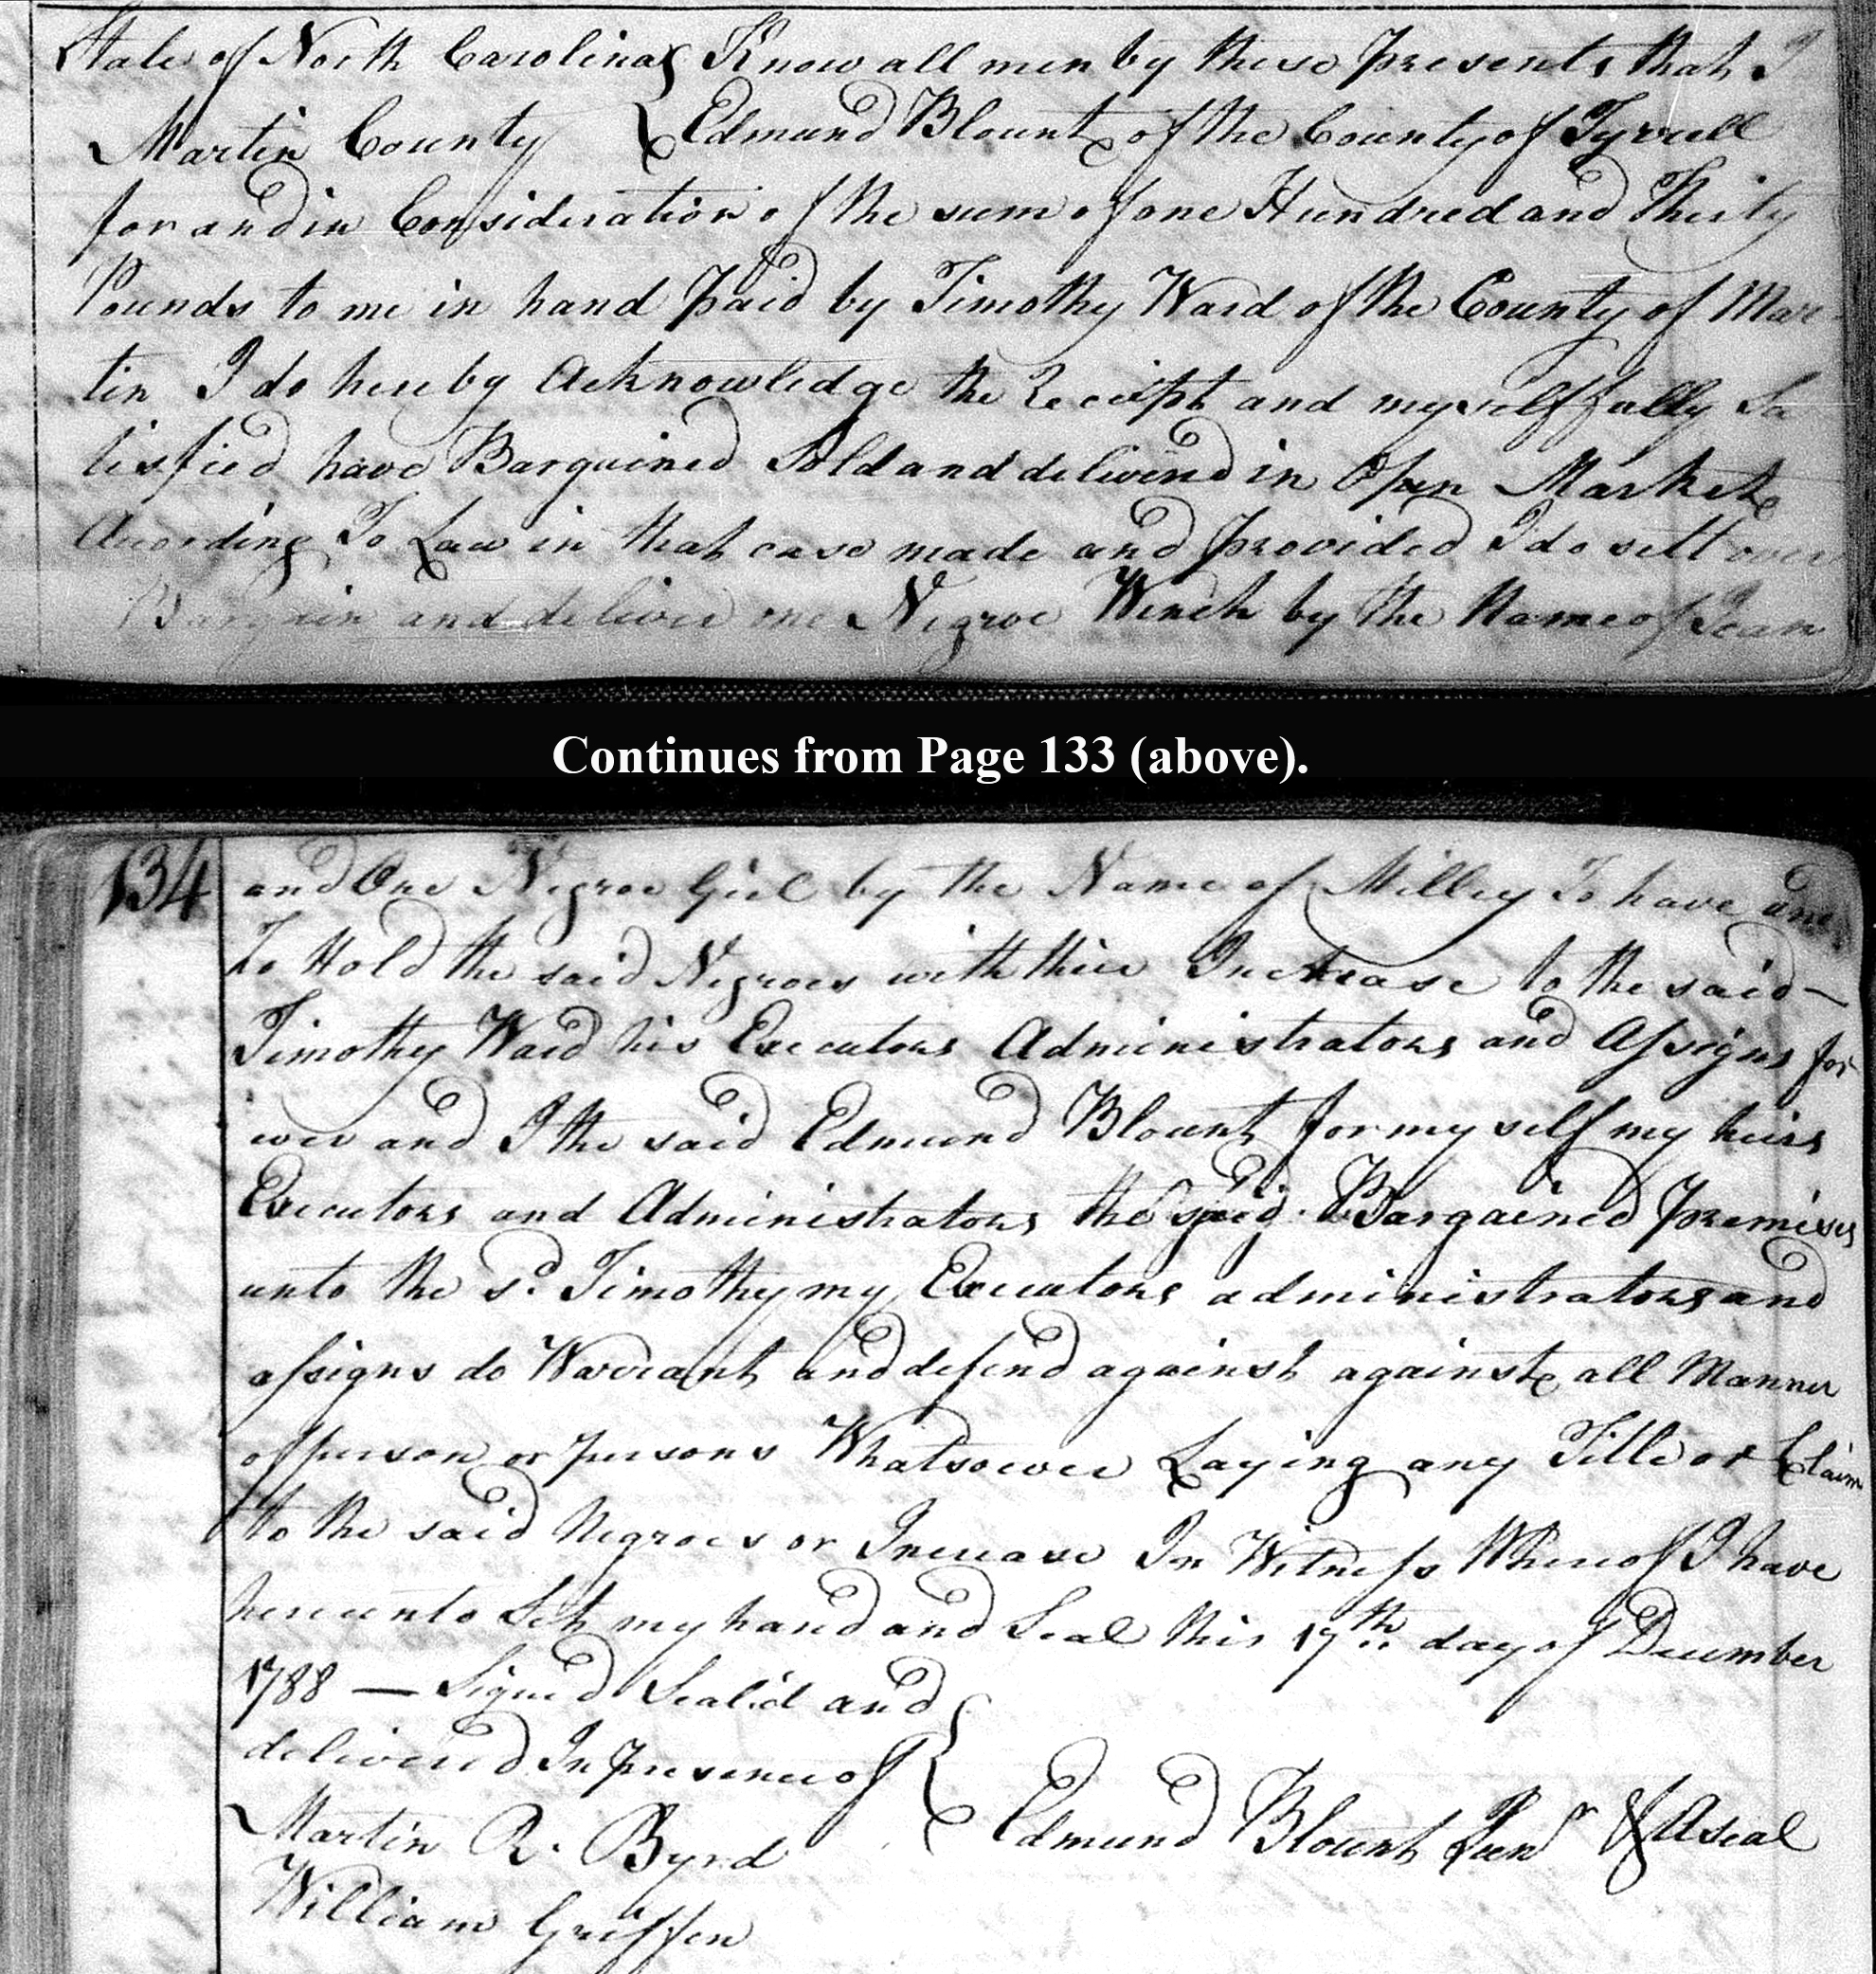 State of North Carolina } Know all men by these presents that I
Martin County } Edmund Blount of the County of Tyrrell
for and in Consideration of the sum of one Hundred and Thirty
Pounds to me in hand paid by Timothy Ward of the County of Mar
tin I do hereby Acknowledge the Receipt and myself fully Sa
tisfied have Bargained Sold and deliverd in Open Market
According To Law in that case made and provided I do sell over
Bargain and deliver one Negroe Wench by the Name of Jean
Continues from Page 133 (above).
134
and One Negroe Girl by the Name of Milley To have and
To Hold the said Negroes with thier Increase to the said —
Timothy Ward his Executors Administrators and Assigns for
ever and I the said Edmund Blount for my self my heirs
Executors and Administrators the said Bargained premises
unto the sd. Timothy my Executors administrators and
assigns do Warrant and defend against against all Manner
of person or persons Whatsoever Laying any Title or Claim
to the said Negroes or Increase In Witness Whereof I have
hereunto Set my hand and Seal this 17th day of December
1788 — Signed Seal'd and
delivered In presence of
Martin R. Byrd
Edmund Blount Junr & A seal
William Griffen